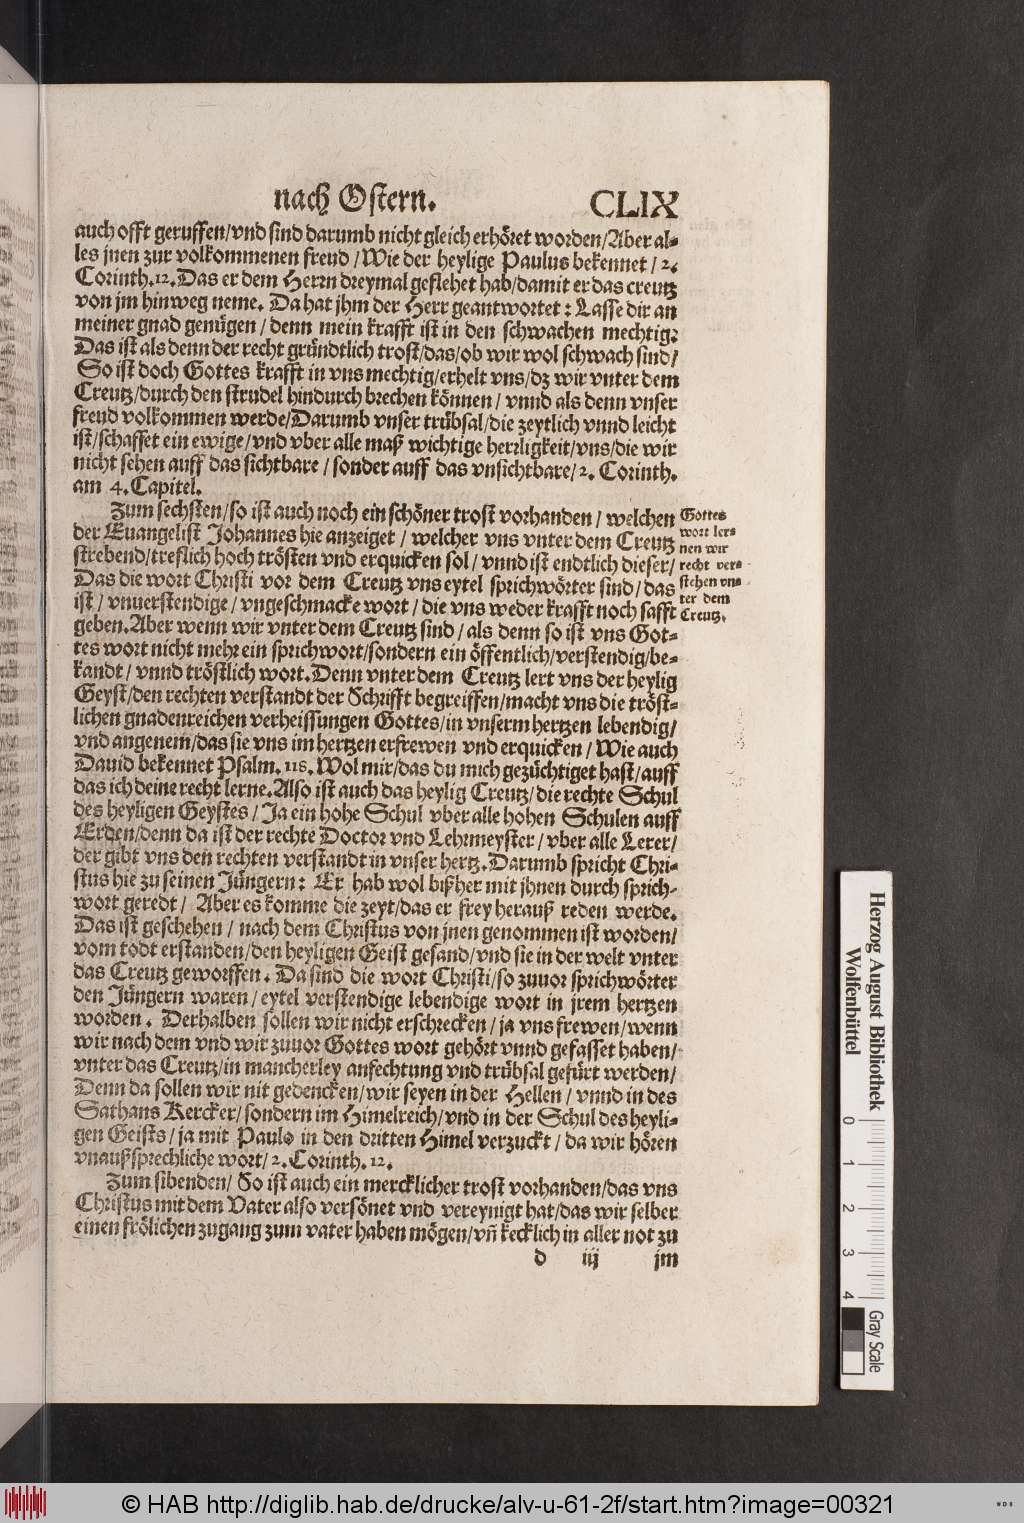 nach Ostern. CLIX
auch offt geruffen/vnd sind darumb nicht gleich erhöret worden/Aber al-
les jnen zur volkommenen freud/Wie der heylige Paulus bekennet/2.
Corinth.12.Das er dem Herrn dreymal geflehet hab/damit er das creutz
von jm hinweg neme. Da hat jhm der Herr geantwortet: Lasse dir an
meiner gnad genügen/denn mein krafft ist in den schwachen mechtig:
Das ist als denn der recht gründtlich trost/das/ob wir wol schwach sind/
So ist doch Gottes krafft in vns mechtig/erhelt vns/dz wir vnter dem
Creutz/durch den strudel hindurch brechen können/vnnd als denn vnser
freud volkommen werde/Darumb vnser trübsal/die zeytlich vnnd leicht
ist/schaffet ein ewige/vnd vber alle maß wichtige herrligkeit/vns/die wir
nicht sehen auff das sichtbare/sonder auff das vnsichtbare/2. Corinth.
am 4.Capitel.
Zum sechsten/so ist auch noch ein schöner trost vorhanden/welchen
der Euangelist Johannes hie anzeiget/welcher vns vnter dem Creutz
strebend/treflich hoch trösten vnd erquicken sol/vnnd ist endtlich dieser/
Das die wort Christi vor dem Creutz vns eytel sprichwörter sind/das
ist/vnuerstendige/vngeschmacke wort/die vns weder krafft noch safft
geben.Aber wenn wir vnter dem Creutz sind/als denn so ist vns Got-
tes wort nicht mehr ein sprichwort/sondern ein öffentlich/verstendig/be-
kandt/vnnd tröstlich wort.Denn vnter dem Creutz lert vns der heylig
Geyst/den rechten verstandt der Schrifft begreiffen/macht vns die tröst-
lichen gnadenreichen verheissungen Gottes/in vnserm hertzen lebendig/
vnd angenem/das sie vns im hertzen erfrewen vnd erquicken/Wie auch
Dauid bekennet Psalm.118.Wol mir/das du mich gezüchtiget hast/auff
das ich deine recht lerne.Also ist auch das heylig Creutz/die rechte Schul
des heyligen Geystes/Ja ein hohe Schul vber alle hohen Schulen auff
Erden/denn da ist der rechte Doctor vnd Lehrmeyster/vber alle Lerer/
der gibt vns den rechten verstandt in vnser hertz.Darumb spricht Chri-
stus hie zu seinen Jüngern: Er hab wol bißher mit jhnen durch sprich-
wort geredt/ Aber es komme die zeyt/das er frey herauß reden werde.
Das ist geschehen/nach dem Christus von jnen genommen ist worden/
vom todt erstanden/den heyligen Geist gesand/vnd sie in der welt vnter
das Creutz geworffen. Da sind die wort Christi/so zuuor sprichwörter
den Jüngern waren/eytel verstendige lebendige wort in jrem hertzen
worden. Derhalben sollen wir nicht erschrecken/ja vns frewen/wenn
wir nach dem vnd wir zuuor Gottes wort gehört vnnd gefasset haben/
vnter das Creutz/in mancherley anfechtung vnd trübsal gefürt werden/
Denn da sollen wir nit gedencken/wir seyen in der Hellen/vnnd in des
Sathans Kercker/sondern im Himelreich/vnd in der Schul des heyli-
gen Geists/ja mit Paulo in den dritten Himel verzuckt/da wir hören
vnaußsprechliche wort/2.Corinth.12.
Zum sibenden/ So ist auch ein mercklicher trost vorhanden/das vns
Christus mit dem Vater also versönet vnd vereynigt hat/das wir selber
einen frölichen zugang zum vater haben mögen/vñ kecklich in aller not zu
d iij jm
Gottes
wort ler-
nen wir
recht ver-
stehen vn-
ter dem
Creutz.
Herzog August Bibliothek
Wolfenbüttel
0 1 2 3 4
Gray Scale
© HAB http://diglib.hab.de/drucke/alv-u-61-2f/start.htm?image=00321